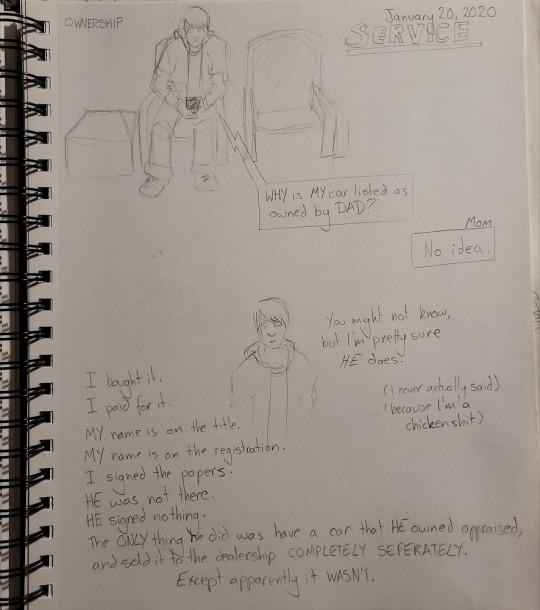 OWNERSHIP
January 20, 2020
SERVICE
WHY is MY car listed as
owned by DAD?
MOM
No idea.
You might not know,
but I'm pretty sure
HE does.
(I never actually said)
(because I'm a
chickenshit)
I bought it.
I paid for it.
MY name is on the title.
MY name is on the registration.
I signed the papers.
HE was not there.
HE signed nothing.
The ONLY thing he did was have a car that HE owned appraised,
and sold it to the dealership COMPLETELY SEPERATELY.
Except apparently it WASN'T.